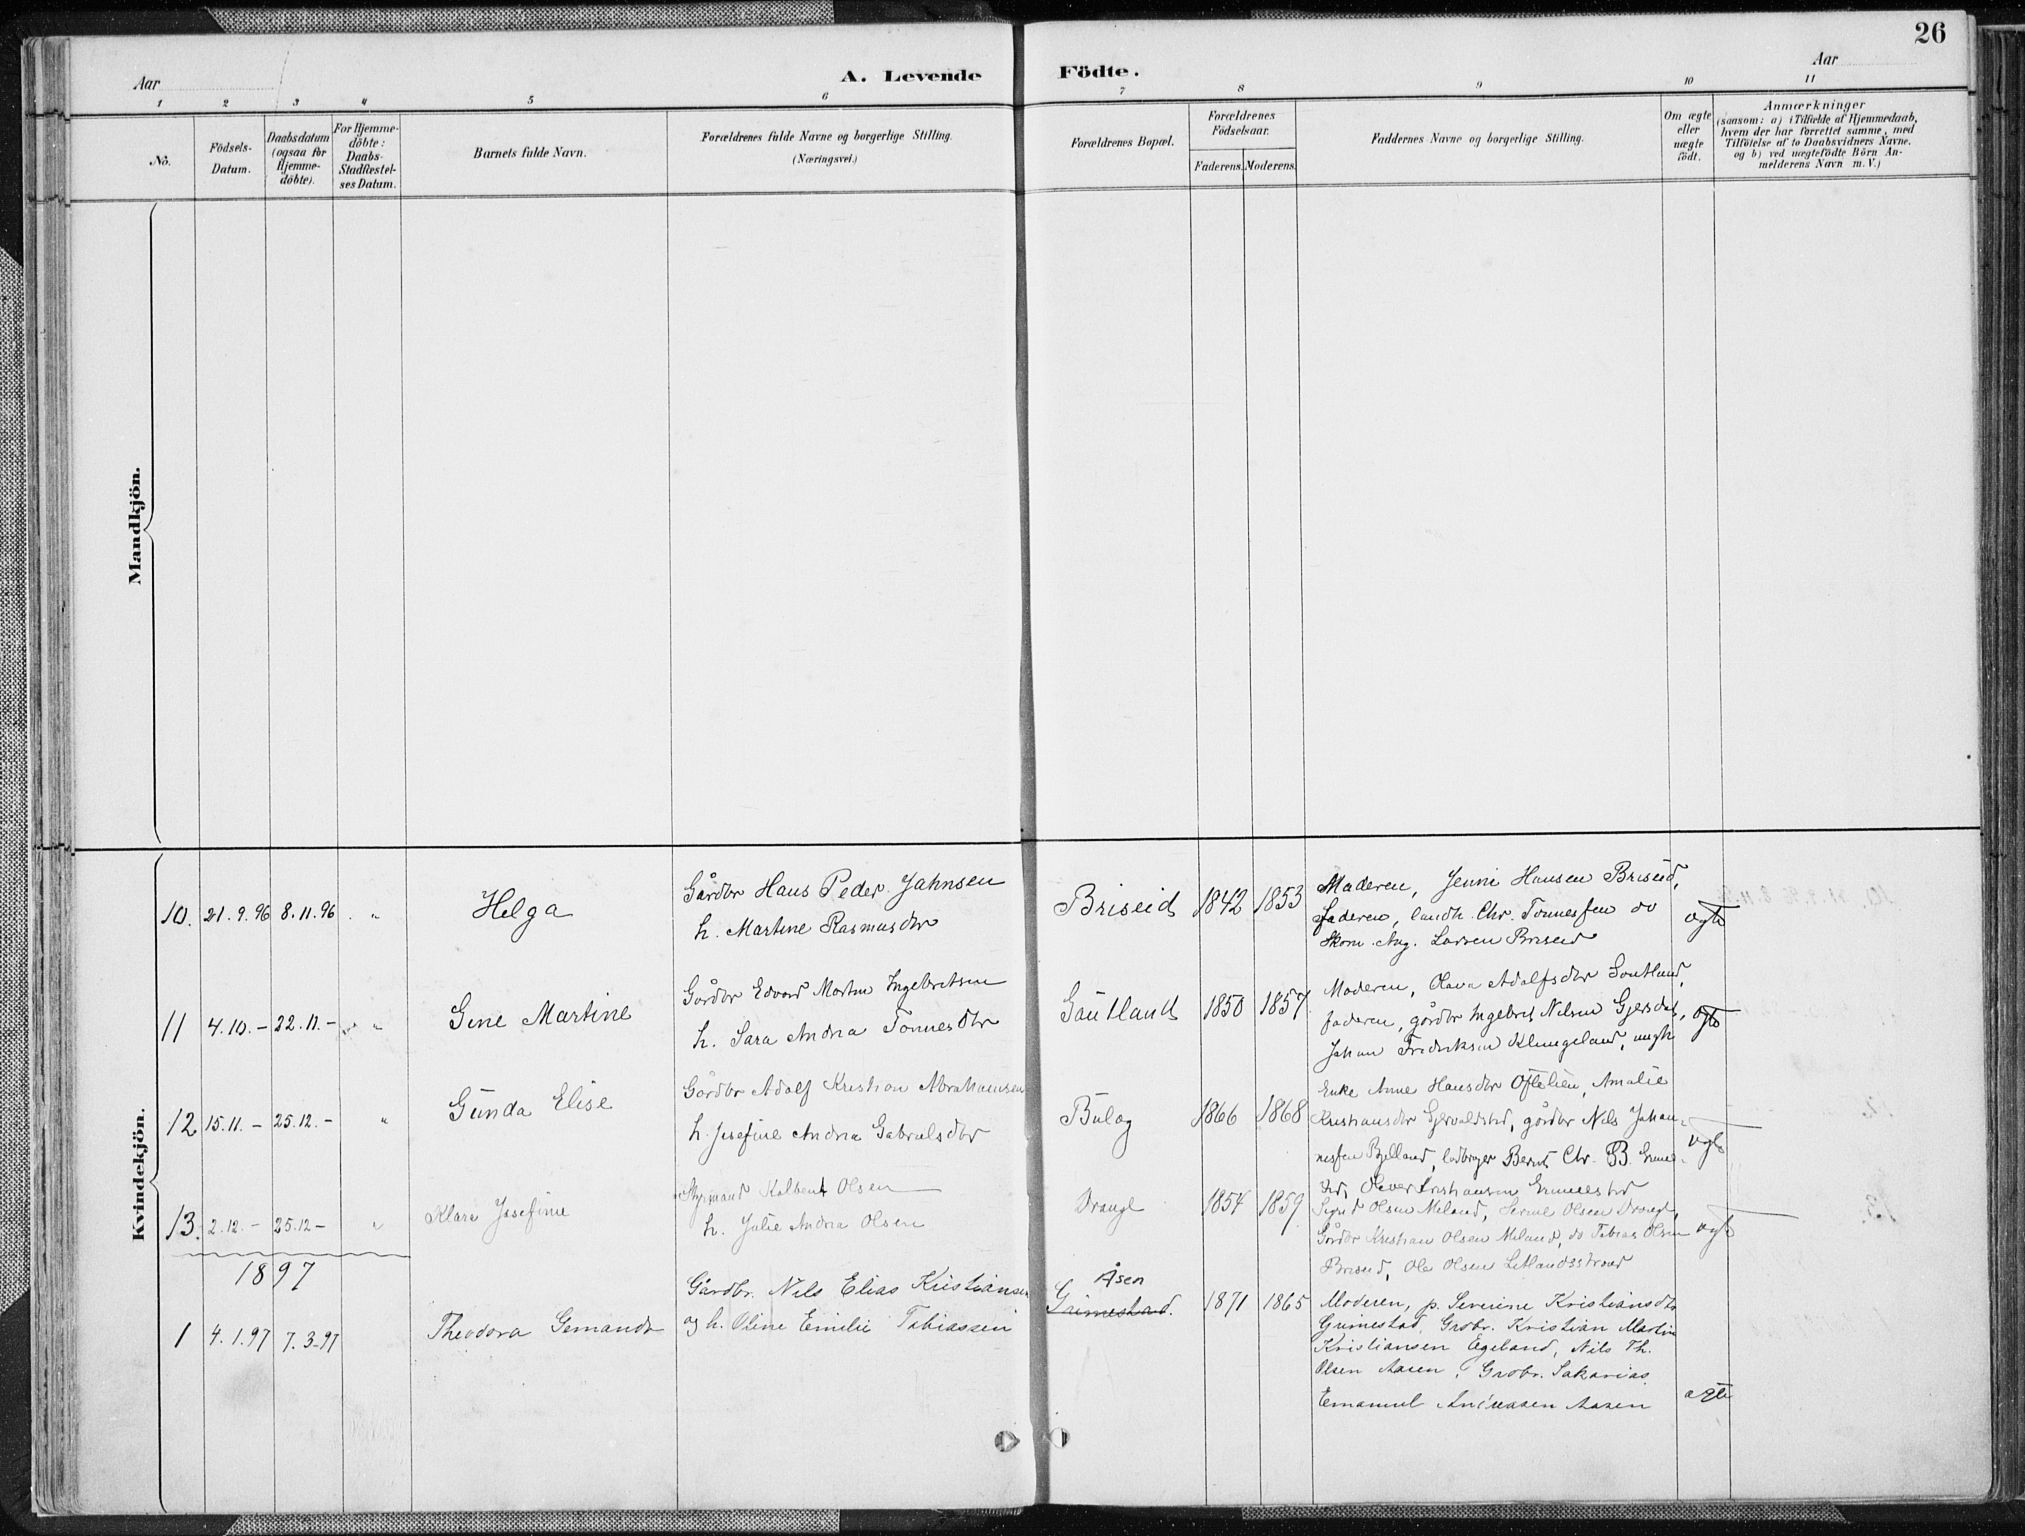 26
Aar
A. Levende Födte.
Aar
1 2 3 4 5 6 7 8 9 10 11
No.
Födsels-
Datum.
Daabsdatum
(ogsaa for
Hjemme-
döbte).
For Hjemme-
döbte:
Daabs-
Stadfæstel-
ses Datum.
Barnets fulde Navn.
Forældrenes fulde Navne og borgerlige Stilling.
(Næringsvei.)
Forældrenes Bopæl.
Forældrenes
Födselsaar.
Faderens. Moderens.
Faddernes Navne og borgerlige Stilling.
Om ægte
eller
uægte
födt.
Anmærkninger
(saasom: a) i Tilfælde af Hjemmedaab,
hvem der har forrettet samme, med
Tilföielse af to Daabsvidners Navne.
og b) ved uægtefödte Börn An-
melderens Navn m. V.)
Mandkjön.
Kvindekjön.
10. 21.9.96 8.11.96 "
Helga
Gårdbr Hans Peder Jahnsen
h. Martine Rasmusdtr
Briseid 1842 1853
Moderen, Jenni Hansen Briseid,
Faderen, landh. Chr. Tonnessen do
Skom. Aug. Larsen Briseid
ægte
11 4.10.- 22.11.- "
Gine Martine
Gårdbr Edvard Martin Ingebretsen
h. Sara Andrea Tonnesdtr
Gautland 1850 1857
Moderen, Olava Adolfsdtr Gautland,
faderen, gårdbr Ingebret Nilsen Gjersdal,
Johan Fredriksen Klungeland, ungk
ægte
12 15.11.- 25.12.- "
Gunda Elise
Gårdbr Adolf Kristian Abrahamsen
h. Josefine Andrea Gabrielsdtr
Bulag 1866 1868
Enke Anne Hansdtr Oftelien, Amalie
Kristiansdtr, gårdbr Nils Johan-
nessen Bjelland, Bernt Chr. B.
ægte
13. 2.12.- 25.12- "
Klara Josefine
Styrmand Kolbent Olsen
h. Julie Andrea Olsen
Draugl 1854 1859
Sigrid Olsen Meland, Serine Olsen Draugl,
Gårdbr Kristian Olsen Meland, do Tobias Olsen
Briseid, Ole Olsen
ægte
1897
1 4.1.97 7.3.97
Theodora Gemande
Gårdbr. Nils Elias Kristiansen
og h. Oline Emilie Tobiassen
Åsen
Grimestad. 1871 1865
Moderen, p. Severine Kristiansdtr
Grimestad, Grdbr. Kristian Martin
Kristiansen Egeland, Nils Th.
Olsen Aasen, Grdbr. Sakarias
Emanuel Andreasen Aasen
ægte